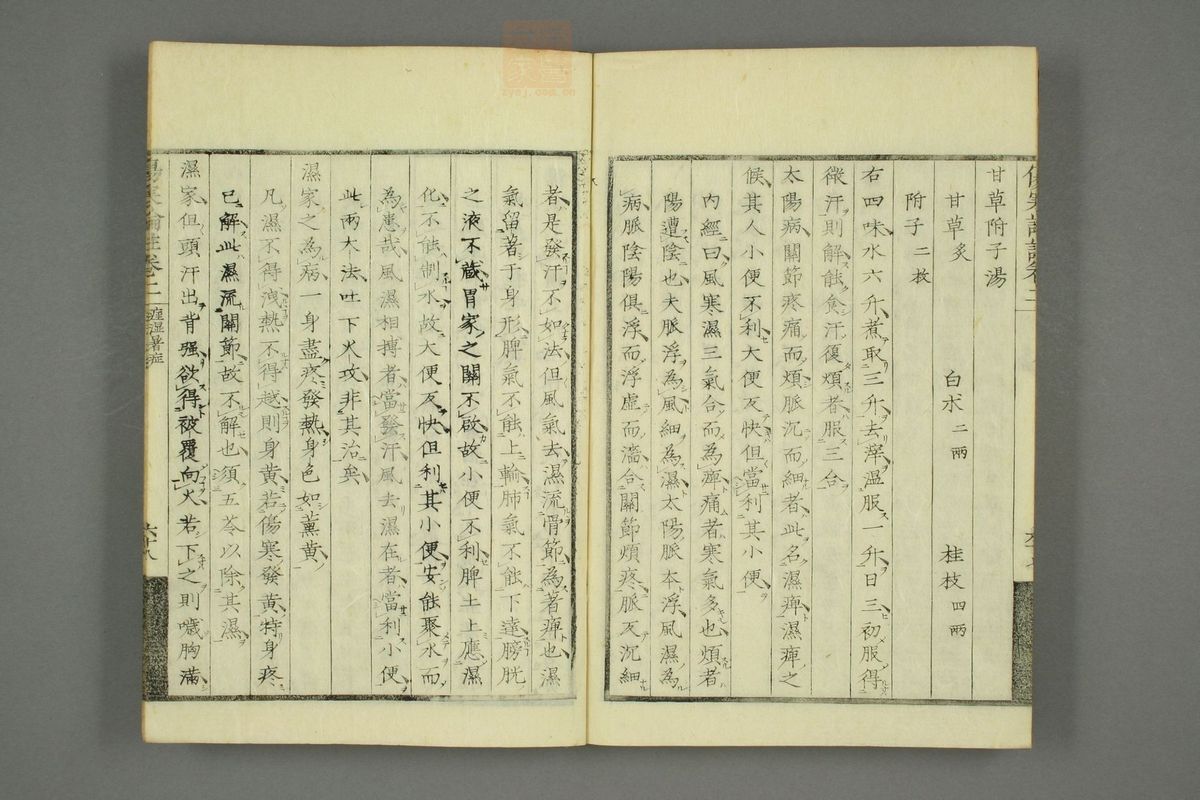 甘草附子湯
甘草炙 白朮二兩 桂枝四兩
附子二枚
右四味水六升煮取三升去滓溫服一升日三初服得
微汗則解能食汗復煩者服三合
太陽病關節疼痛而煩脈沉而細者此名濕痺濕痺之
候其人小便不利大便反快但當利其小便
內經曰風寒濕三氣合而為痺痛者寒氣多也煩者
陽遭陰也夫脈浮為風細為濕太陽脈本浮風濕為
病脈陰陽俱浮而浮虛而濇合關節煩疼脈反沉細
者是發汗不如法但風氣去濕流骨節為著痺也濕
氣留著于身形脾氣不能上輸肺氣不能下達膀胱
之液不藏胃家之關不啟故小便不利脾土上應濕
化不能制水故大便反快但利其小便安能聚水而
為患哉風濕相搏者當發汗風去濕在者當利小便
此兩大法吐下火攻非其治矣
濕家之為病一身盡疼發熱身色如薰黃
凡濕不得洩熱不得越則身黃若傷寒發黃特身疼
已解此濕流關節故不解也須五苓以除其濕
濕家但頭汗出背强欲得被覆向火若下之則噦胸滿
傷寒論註卷二 痙湿暑症
zysj.com.cn